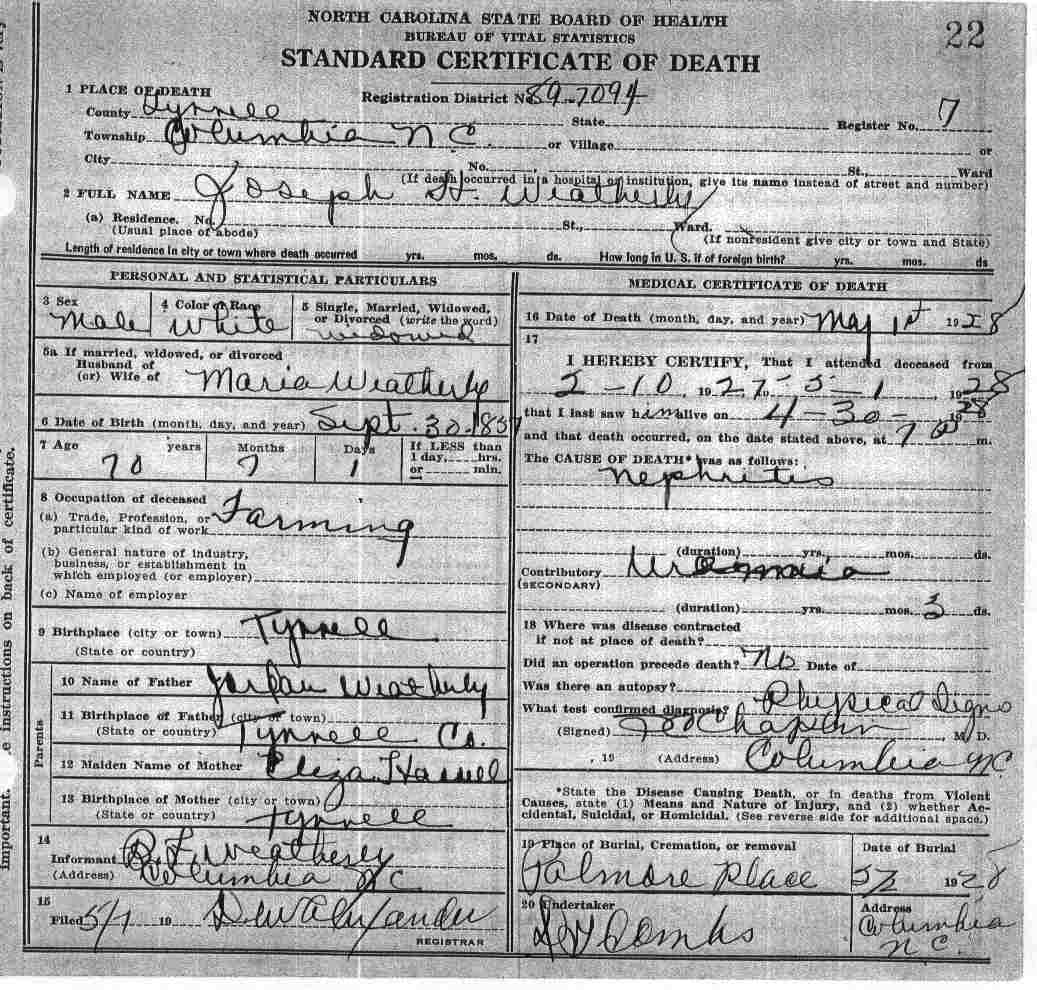 NORTH CAROLINA STATE BOARD OF HEALTH
BUREAU OF VITAL STATISTICS
22
STANDARD CERTIFICATE OF DEATH
1 PLACE OF DEATH
Registration District No. 89-7094
County Tyrrell State Register No. 7
Township Columbia N C. or Village or
City No. St., Ward
(If death occurred in a hospital or institution, give its name instead of street and number)
2 FULL NAME Joseph H. Weatherly
(a) Residence. No. St., Ward.
(Usual place of abode) (If nonresident give city or town and State)
Length of residence in city or town where death occurred yrs. mos. ds. How long in U. S. if of foreign birth? yrs. mos. ds
PERSONAL AND STATISTICAL PARTICULARS
3 Sex Male
4 Color or Race White
5 Single, Married, Widowed, or Divorced (write the word) widowed
5a If married, widowed, or divorced
Husband of
(or) Wife of Maria Weatherly
6 Date of Birth (month, day, and year) Sept. 30. 1857
7 Age years Months Days If LESS than
1 day, hrs.
70 7 1 or min.
8 Occupation of deceased
(a) Trade, Profession, or
particular kind of work Farming
(b) General nature of industry,
business, or establishment in
which employed (or employer)
(c) Name of employer
9 Birthplace (city or town) Tyrrell
(State or country)
Parents
10 Name of Father Weatherly
11 Birthplace of Father (city or town)
(State or country) Tyrrell Co.
12 Maiden Name of Mother Eliza Hassell
13 Birthplace of Mother (city or town)
(State or country) Tyrrell
14
Informant Weatherly
(Address) Columbia NC
15
Filed 5/1 19 Alexander
REGISTRAR
MEDICAL CERTIFICATE OF DEATH
16 Date of Death (month, day, and year) May 1st 1928
17
I HEREBY CERTIFY, That I attended deceased from
2-10, 1927, to 5-1 1928
that I last saw him alive on 4-30- 1928
and that death occurred, on the date stated above, at 7 m.
The CAUSE OF DEATH* was as follows:
Nephritis
(duration) yrs. mos. ds.
Contributory Uraemia
(SECONDARY)
(duration) yrs. mos. 3 ds.
18 Where was disease contracted
if not at place of death?
Did an operation precede death? No Date of
Was there an autopsy?
What test confirmed diagnosis? Physical Signs
(Signed) Chaplin, M. D.
, 19 (Address) Columbia NC
*State the Disease Causing Death, or in deaths from Violent
Causes, state (1) Means and Nature of Injury, and (2) whether Ac-
cidental, Suicidal, or Homicidal. (See reverse side for additional space.)
19 Place of Burial, Cremation, or removal
Date of Burial
Palmore Place
5/2 1928
20 Undertaker
Address
Combs
Columbia
N C.
Important.
e instructions on back of certificate.